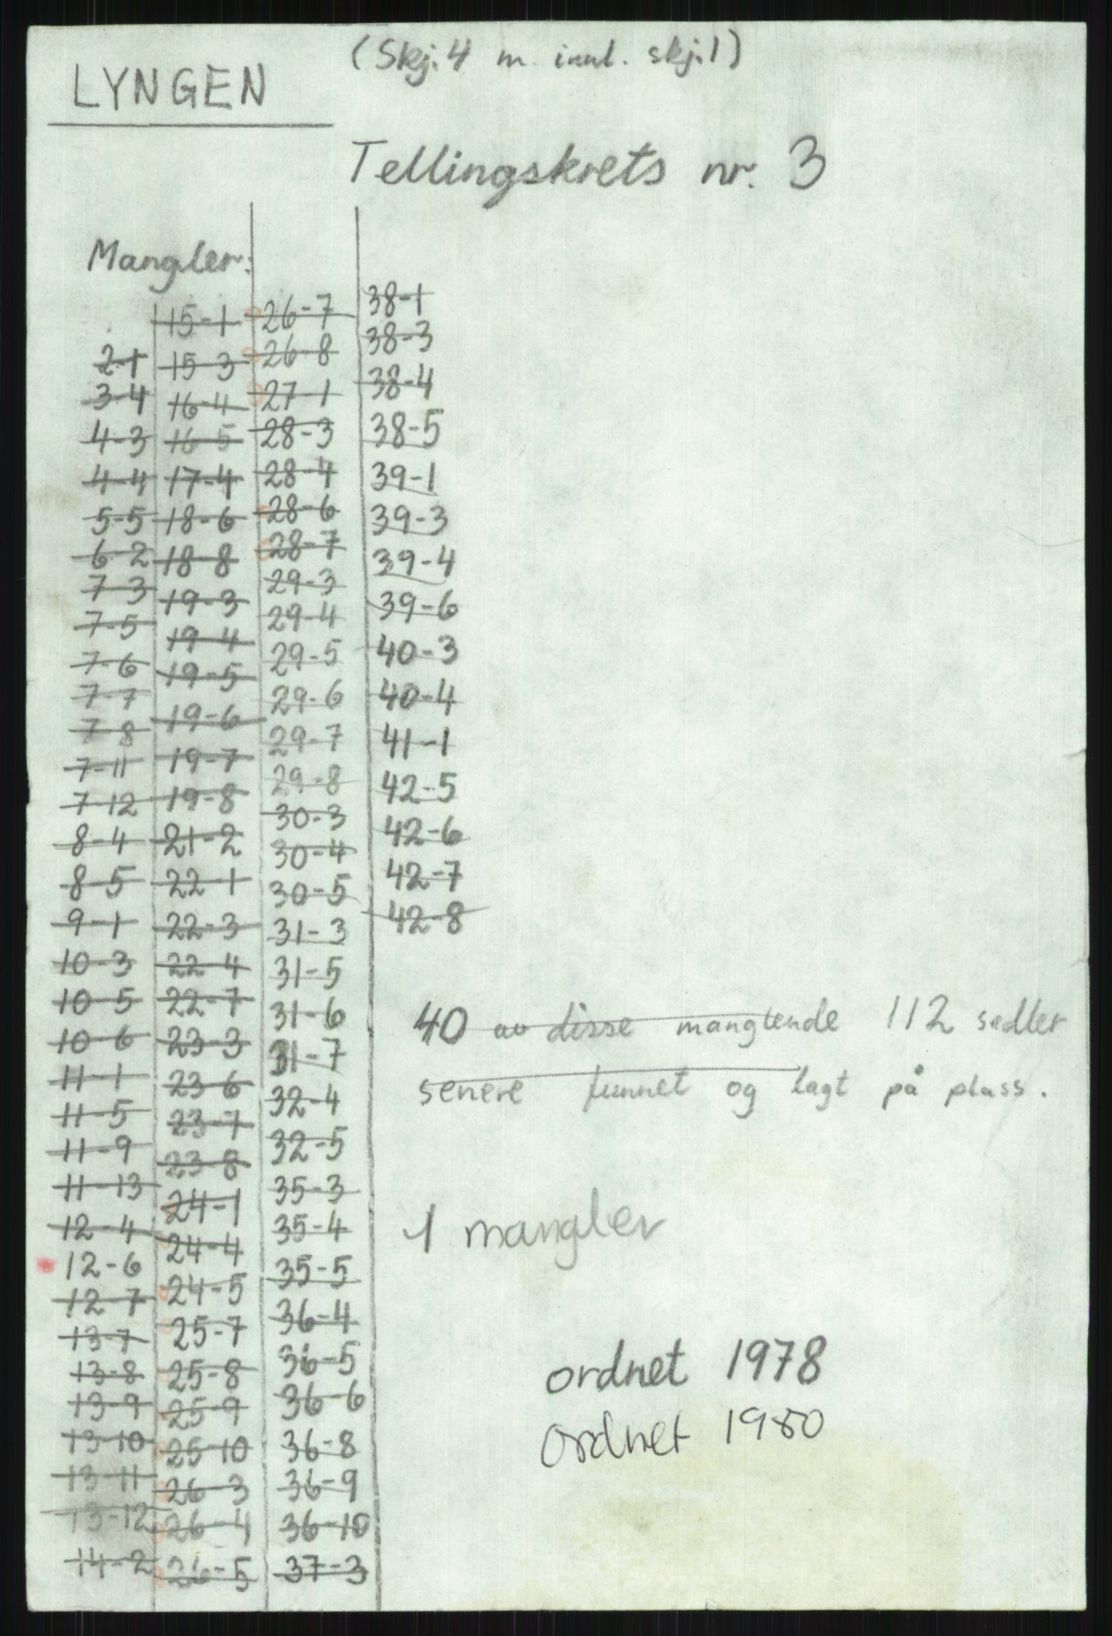 (Skj. 4 m. innl. skj. 1)
LYNGEN
Tellingskrets nr. 3
Mangler:
2-1
3-4
4-3
4-4
5-5
6-2
7-3
7-5
7-6
7-7
7-8
7-11
7-12
8-4
8-5
9-1
10-3
10-5
10-6
11-1
11-5
11-9
11-13
12-4
12-6
12-7
13-7
13-8
13-9
13-10
13-11
13-12
14-2
15-1
15-3
16-4
16-5
17-4
18-6
18-8
19-3
19-4
19-5
19-6
19-7
19-8
21-2
22-1
22-3
22-4
22-7
23-3
23-6
23-7
23-8
24-1
24-4
24-5
25-7
25-8
25-9
25-10
26-3
26-4
26-5
26-7
26-8
27-1
28-3
28-4
28-6
28-7
29-3
29-4
29-5
29-6
29-7
29-8
30-3
30-4
30-5
31-3
31-5
31-6
31-7
32-4
32-5
35-3
35-4
35-5
36-4
36-5
36-6
36-8
36-9
36-10
37-3
38-1
38-3
38-4
38-5
39-1
39-3
39-4
39-6
40-3
40-4
41-1
42-5
42-6
42-7
42-8
40 av disse manglende 112 sedler
senere funnet og lagt på plass.
1 mangler
ordnet 1978
ordnet 1980